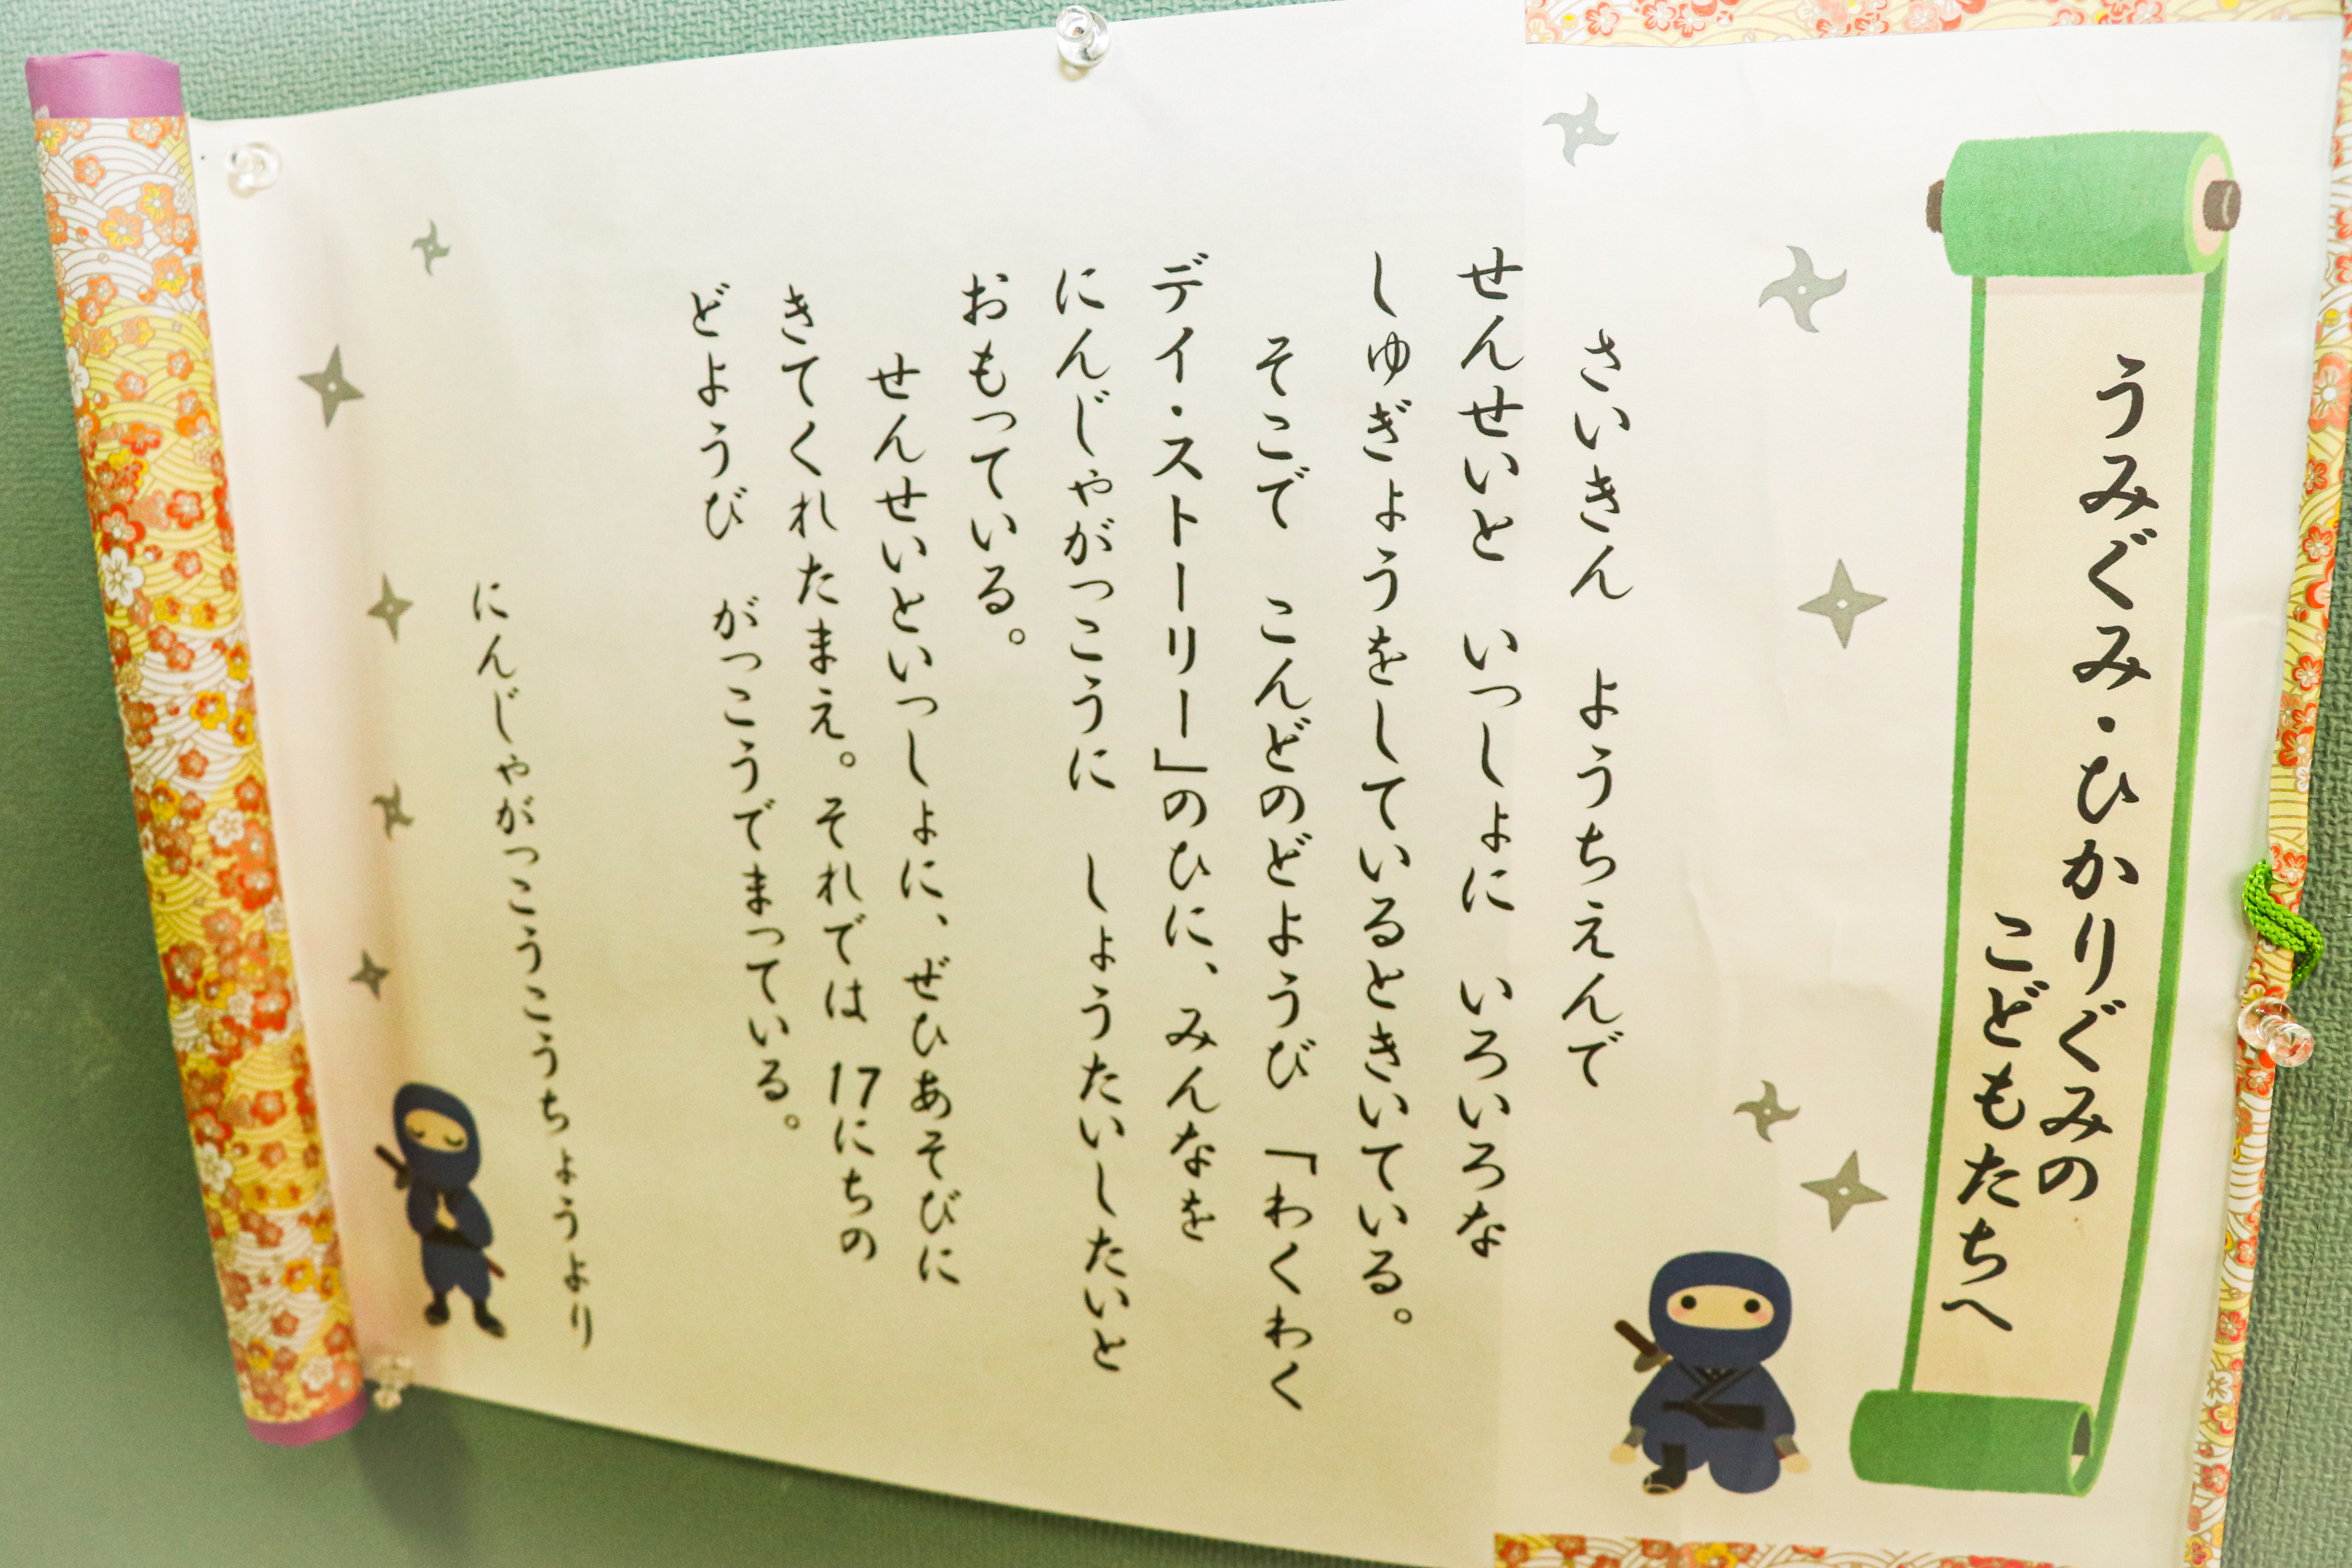 うみぐみ・ひかりぐみの
こどもたちへ
さいきん　ようちえんで
せんせいと　いっしょに　いろいろな
しゅぎょうをしているときいている。
そこで　こんどのどようび　「わくわく
デイ・ストーリー」のひに、みんなを
にんじゃがっこうに　しょうたいしたいと
おもっている。
せんせいといっしょに、ぜひあそびに
きてくれたまえ。それでは　17にちの
どようび　がっこうでまっている。
にんじゃがっこうこうちょうより